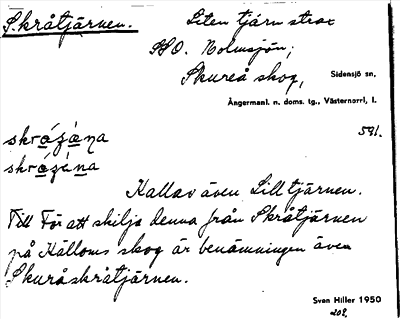 Skråtjärnen. Liten tjärn strax
SSO. Holmsjön,
Skureå skog, Sidensjö sn,
Ångermanl. n. doms. tg., Västernorrl, l.
591.
Kallas även Lilltjärnen.
Till För att skilja denna från Skråtjärnen
på Källoms skog är benämningen även
Skuråskråtjärnen.
Sven Hiller 1950
202,